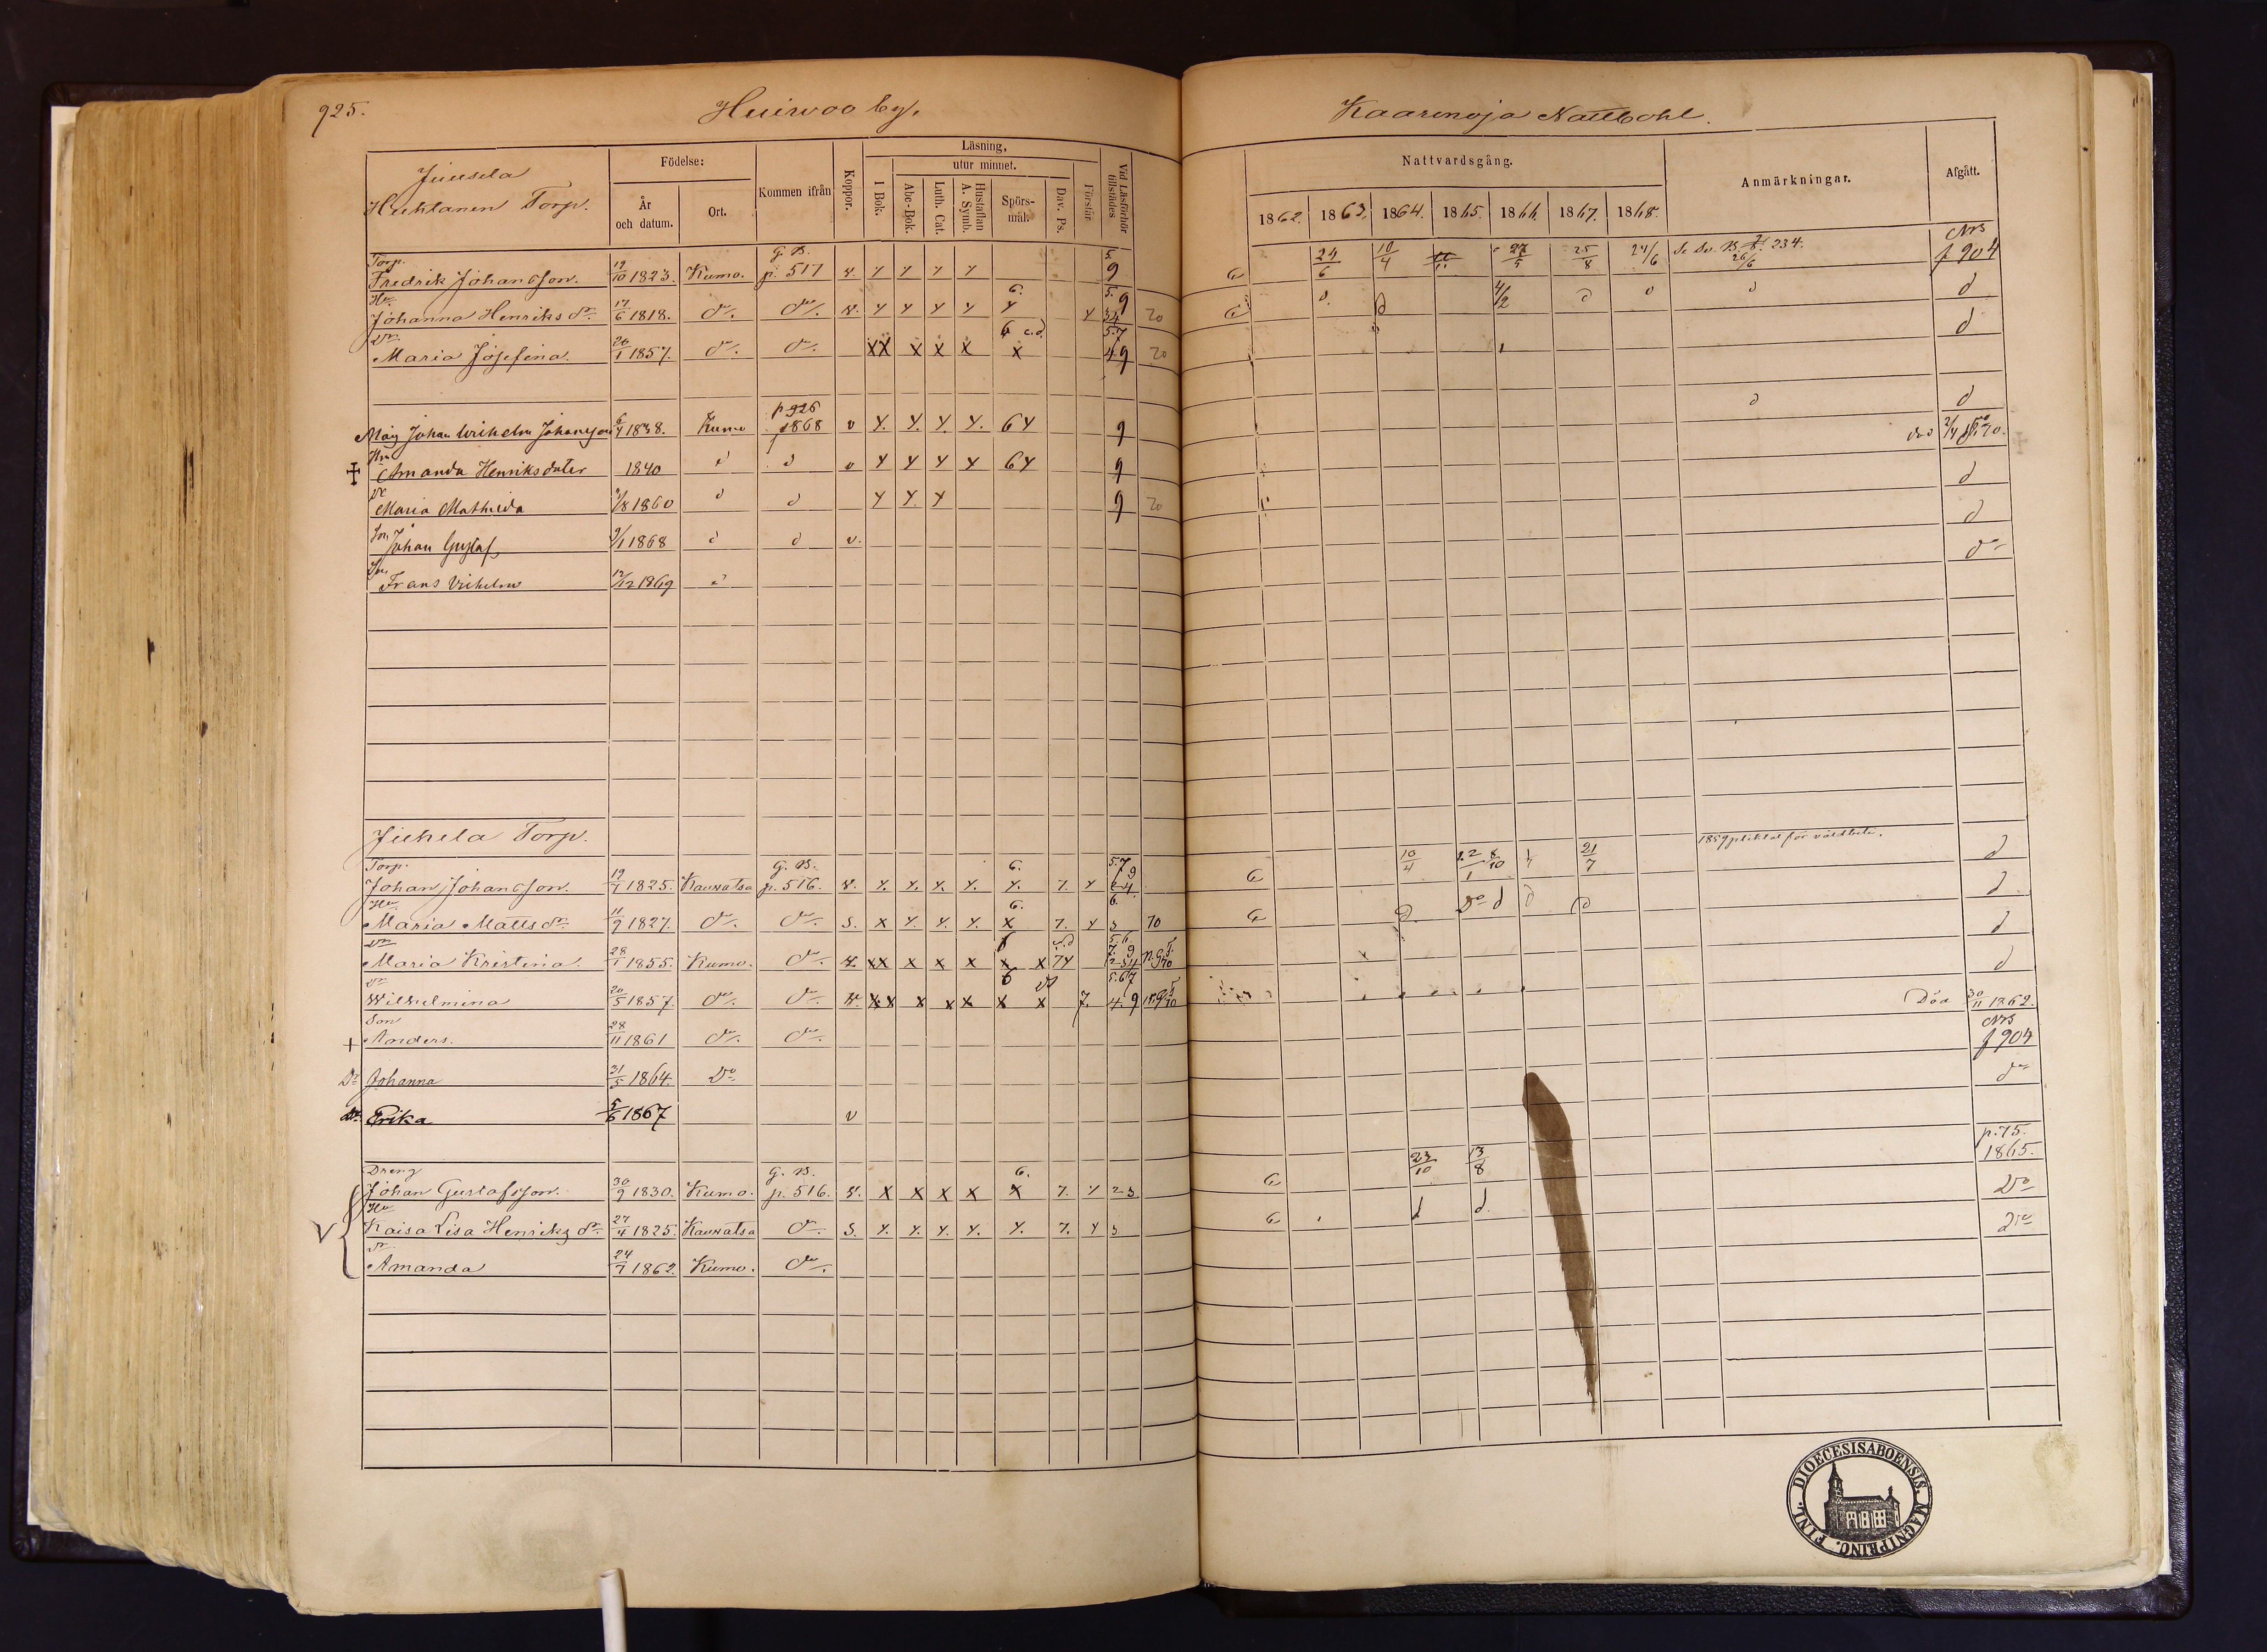 925.
Huiwoo by.
Kaarenoja Nattbohl.
Juusela
Huhtanen Torp.
Födelse:
År och datum.
Ort.
Kommen ifrån
Koppor.
Läsning,
I Bok.
utur minnet.
Abc-Bok.
Luth. Cat.
Hustaflan A. Symb.
Spörsmål.
Dav. Ps.
Förstår
Vid Läsförhör tillstädes
Nattvardsgång.
1862. 1863. 1864. 1865. 1866. 1867. 1868.
Anmärkningar.
Afgått.
Torp. Fredrik Johansson. 19/10 1823. Kumo. G. B. p. 517 v. y y y y 5. 9 24/6 10/4 27/5 25/8 24/6 234. NB f 904
Hu. Johanna Henriksdr. 17/6 1818. do. do. v. y y y y 6. y y 5. 9 34 70 d. d 4/2 d d d d
Dr Maria Josefina. 26/1 1857. do. do. xx x x x 6 c.d. x 5.7 49 70 d
Måg Johan Wilhelm Johansson 6/4 1838. Kumo p 926 1868 v y. y. y. y. 6 y 9 d d
Hu Amanda Henriksdoter 1840 d d v y y y y 6 y 9 död 2/4 1870.
Dr Maria Mathilda 1/8 1860 d d y y. y 9 70 d
Son Johan Gustaf 9/1 1868 d d v. d
Son Frans Vilhelm 12/12 1869 d do
Juhela Torp.
Torp. Johan Johansson. 19/7 1825. Kauvatsa G. B. p. 516. v. y. y. y. y. 6. y. 7. y 5.7 9 24. 10/4 8/10 21/7 1859 pliktat för våldta. d
Hu Maria Mattsdr. 11/9 1827. do. do. s. x y. y. y. 6. x 7. y 6. 3 70 d. Do d d d d
Dr Maria Kristina. 28/1 1855. Kumo. do. v. xx x x x 6 x x 7y 5.6 7. 9 234 70 d
Dr Wilhelmina 20/5 1857. do. do. v. xx x xx 6 x x 7. 5.67 4. 9 70 d
Son Anders. 28/11 1861 do. do. Död 30/11 1862.
Dr Johanna 31/5 1864. Do NB f 904
Dr. Erika 5/6 1867 v do
Dreng Johan Gustafsson. 30/9 1830. Kumo. G. B. p. 516. v. x x x x 6. x 7. y 23 23/10 13/8 p. 75. 1865.
Hu Kaisa Lisa Henriksdr. 27/4 1825. Kauvatsa do. s. y. y. y. y. y. 7. y 3 d d. Do
Dr Amanda 24/7 1862. Kumo. do. Do
DIOECESIS ABOENSIS. MAGNI PRINC. FINL.